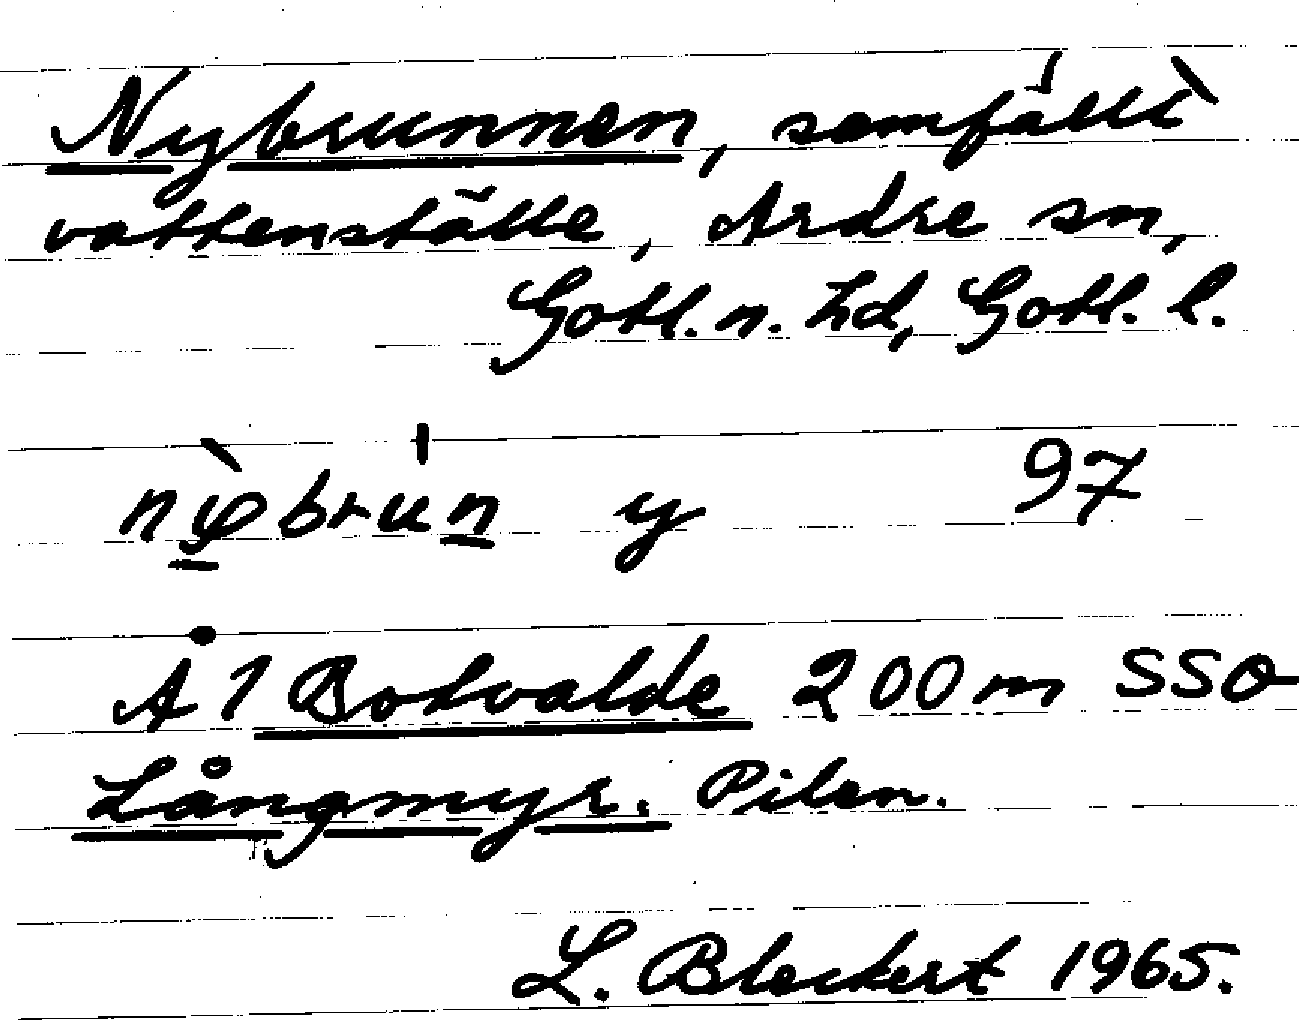 Nybrunnen, samfällt
vattenställe, Ardre sn,
Gotl. n. hd, Gotl. l.
nỳbrun y 97
Å 1 Botvalde 200 m SSO
Långmyr. Pilen.
L. Bleckert 1965.